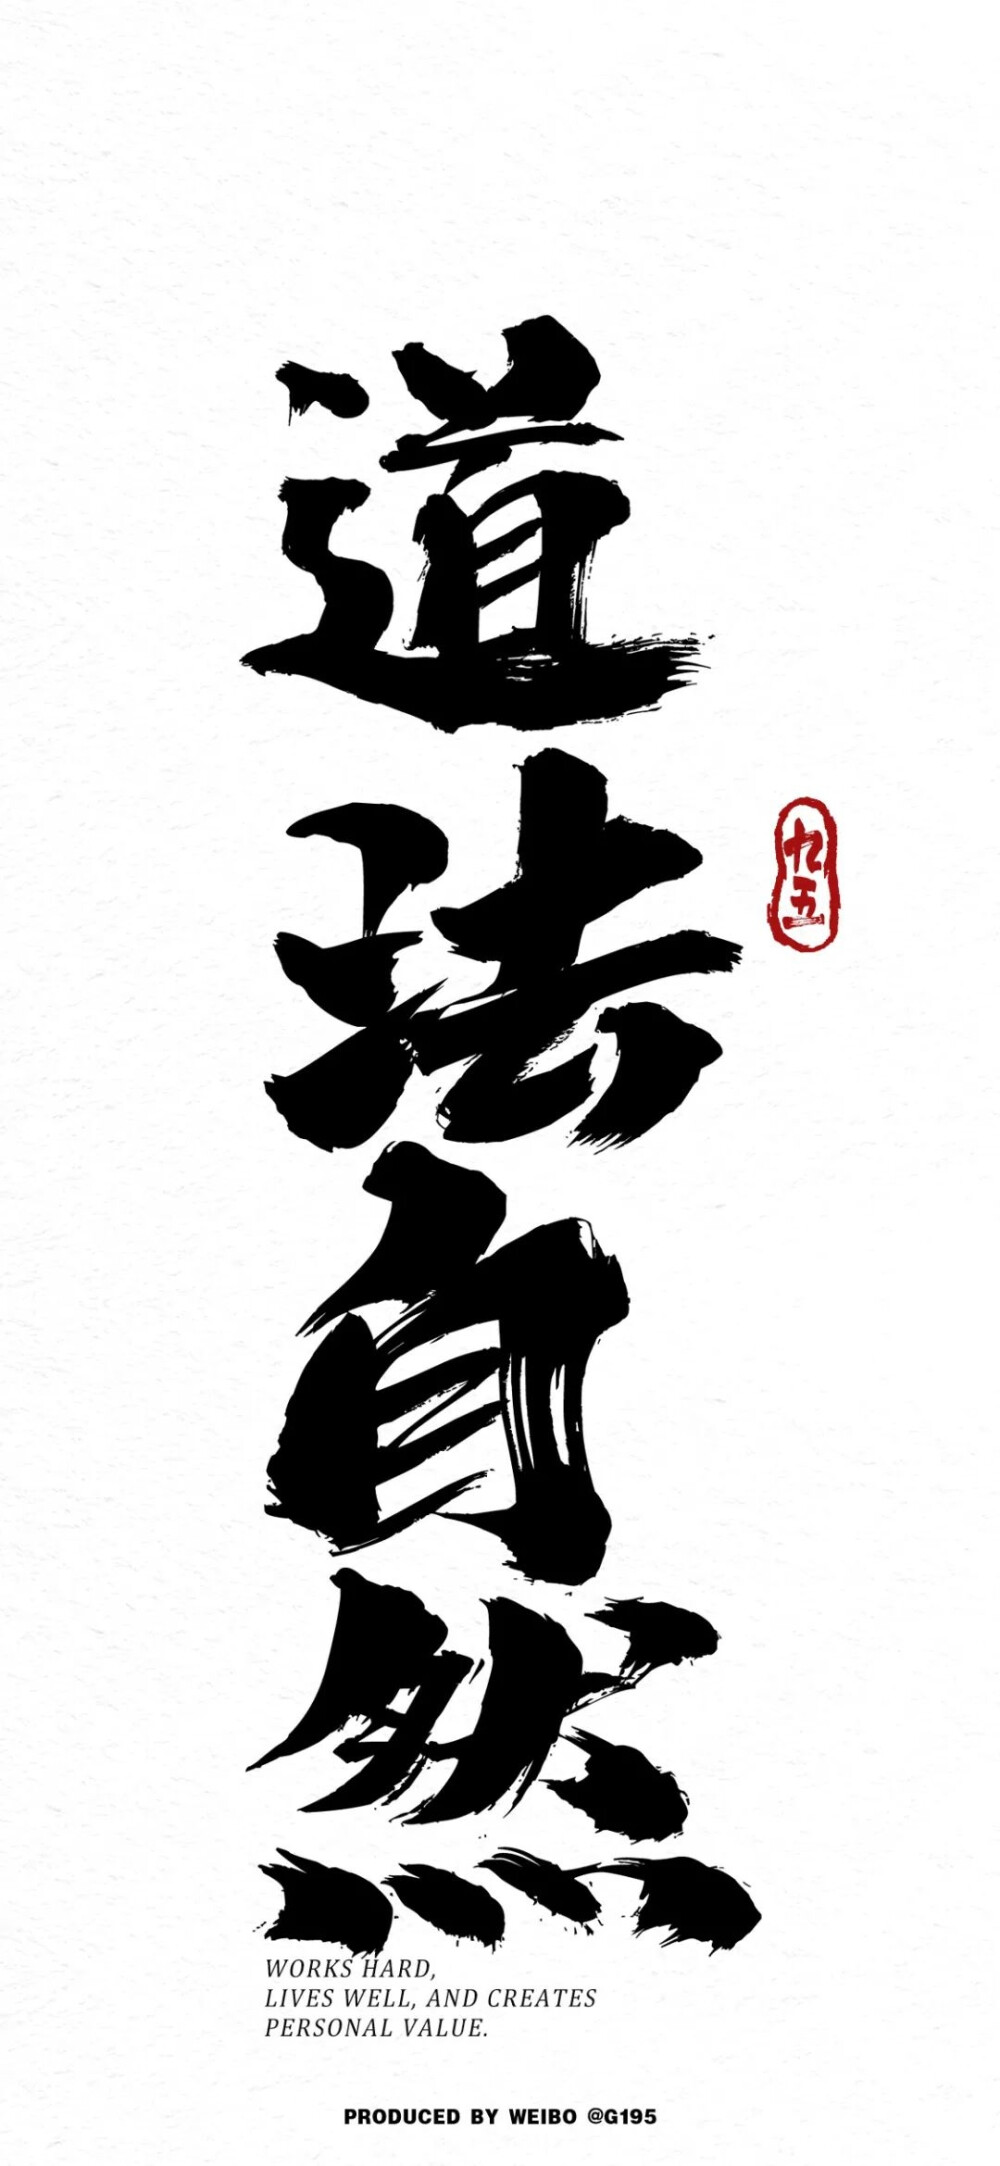 道法自然
九五
WORKS HARD,
LIVES WELL, AND CREATES
PERSONAL VALUE.
PRODUCED BY WEIBO @G195